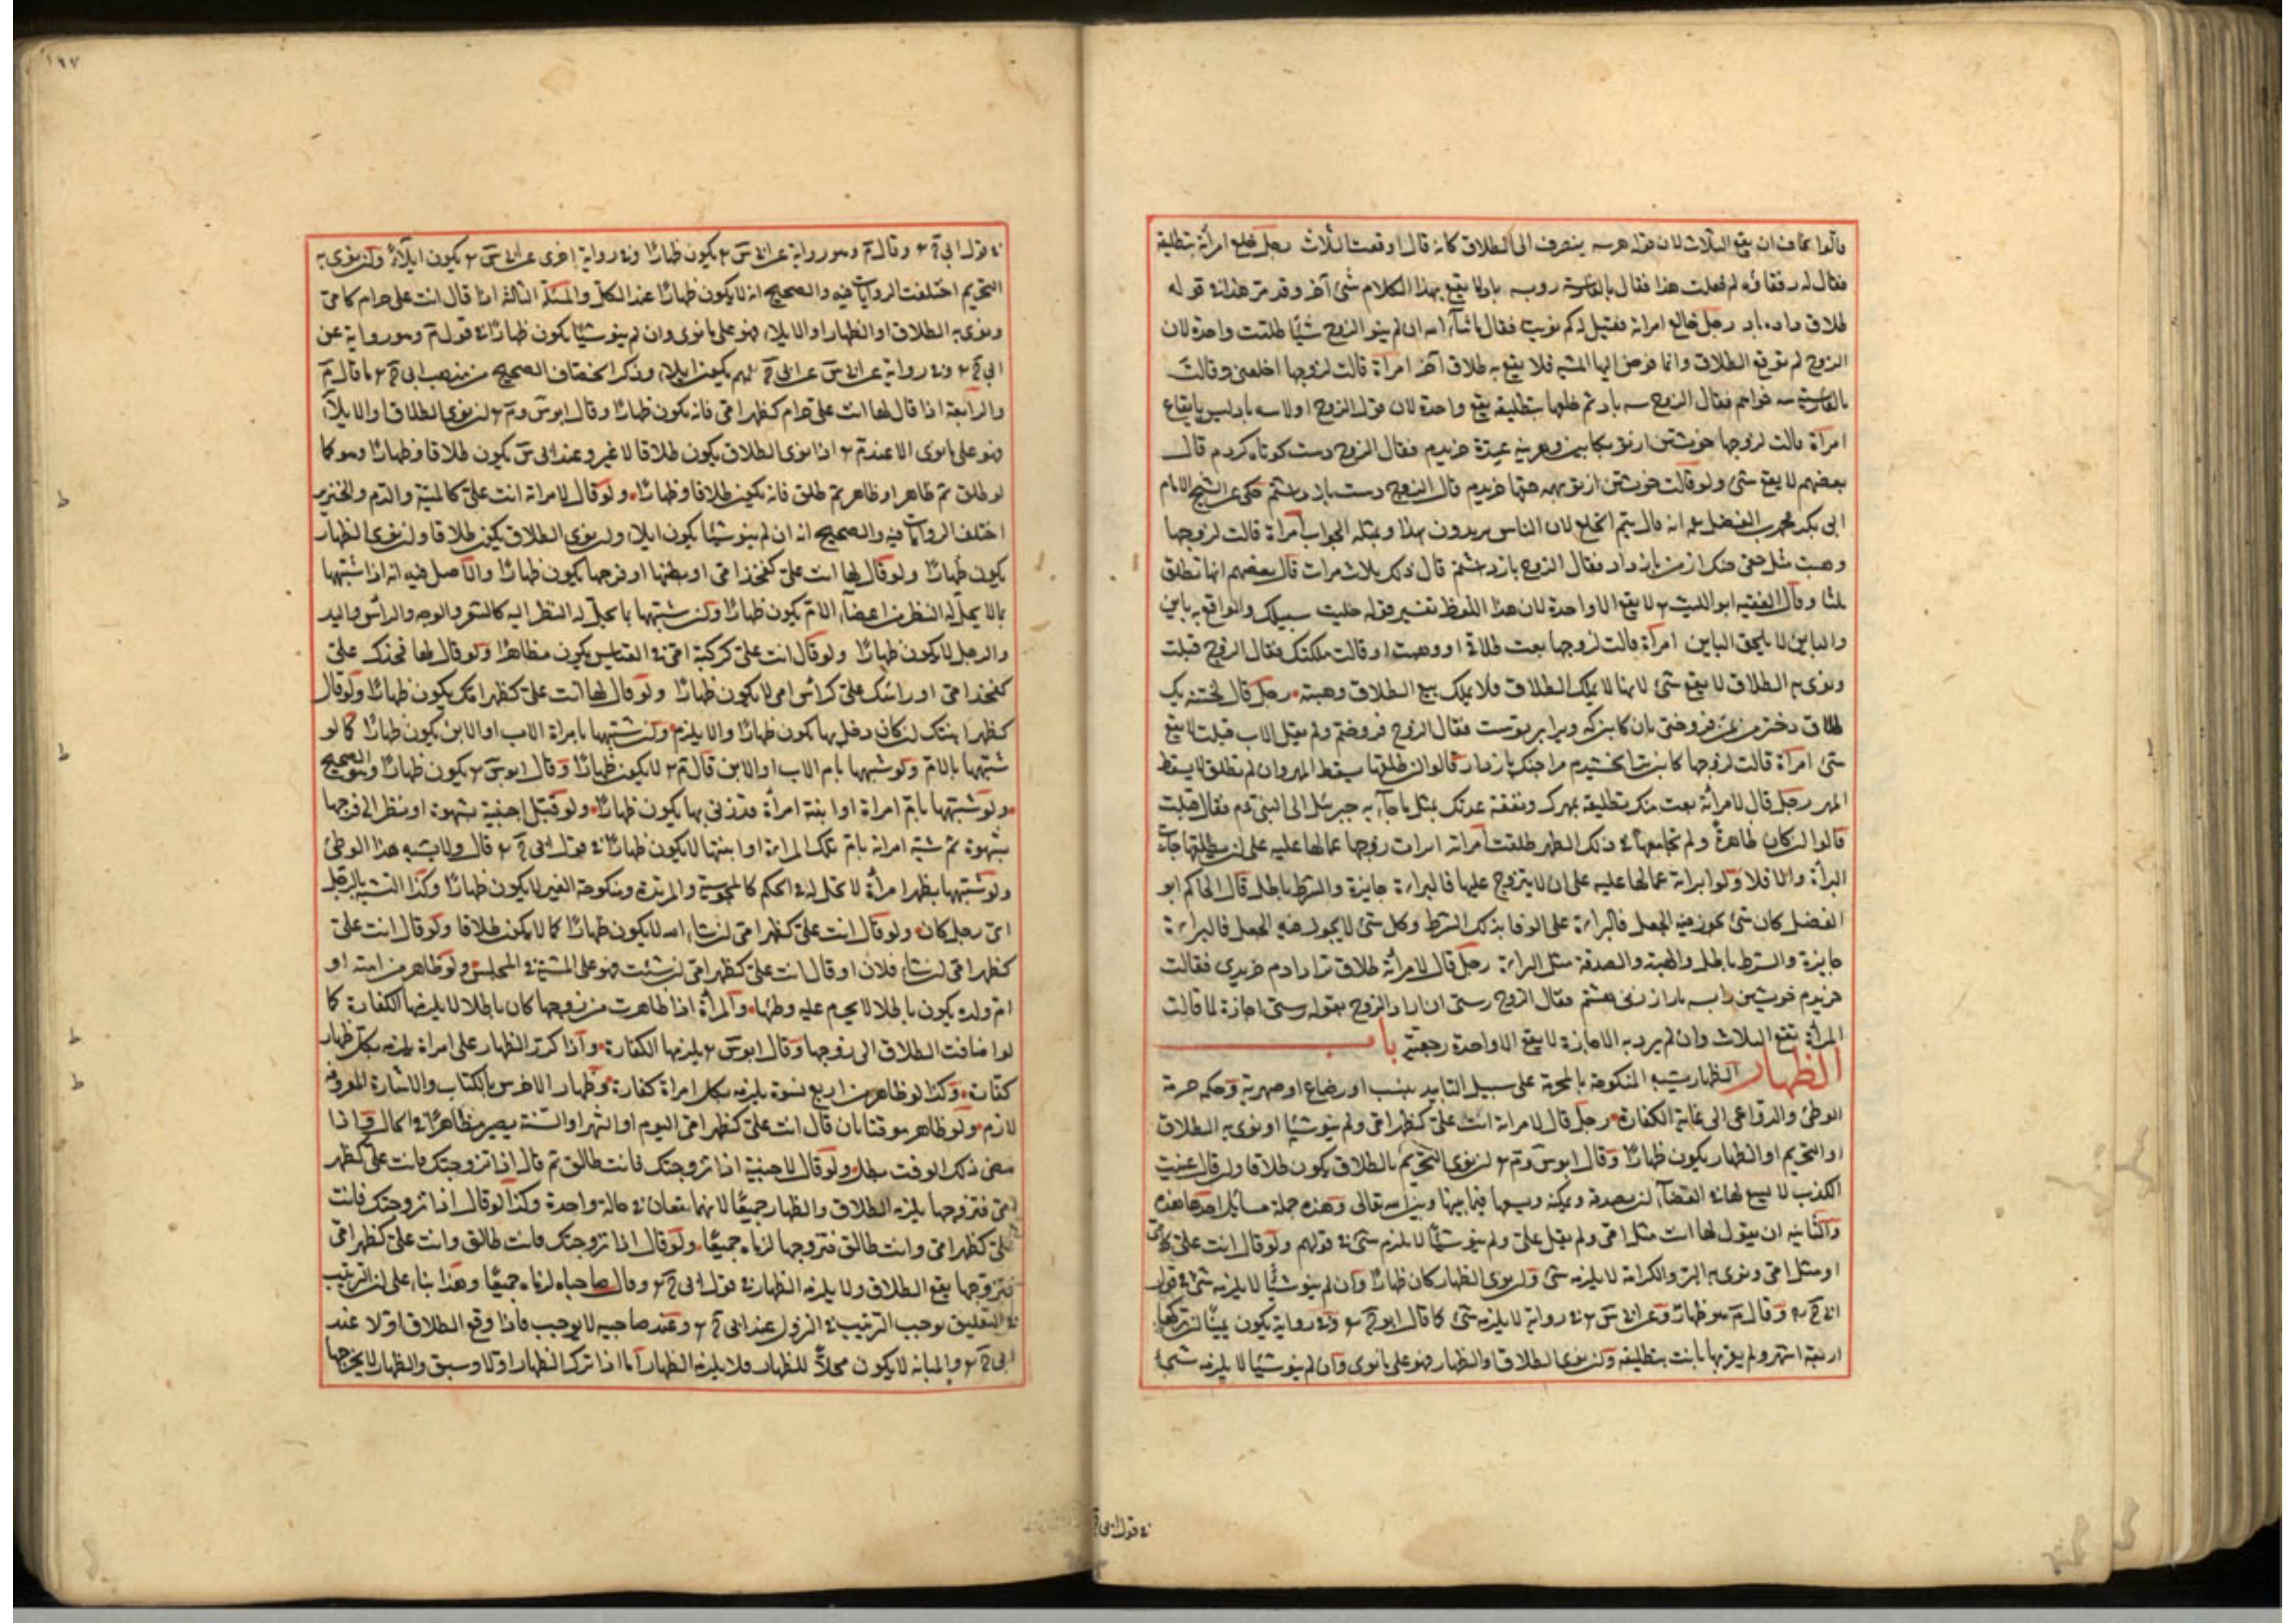 قالوا يخاف ان يقع الثلاث لان قوله هرسه ينصرف الى الطلاق كانه قال اوقعت الثلاث رجل خلع امرأته بتطليقة
فقال له رفقاؤه لم فعلت هذا فقال بالفارسية رو سه باد لا يقع بهذا الكلام شئ آخر وقد مر هذا في قوله
طلاق داده باد رجل خالع امراته فقيل له كم نويت فقال ما شاء الله ان لم ينو الزوج شيئا طلقت واحدة لان
الزوج لم يوقع الطلاق وانما فوض اليها المشية فلا يقع به طلاق آخر امرأة قالت لزوجها اخلعني وقالت
بالفارسية سه خواهم فقال الزوج سه باد ثم خلعها بتطليقة يقع واحدة لان قول الزوج اولا سه باد ليس بايقاع
امرأة قالت لزوجها خويشتن از تو بكابين وهزينه عدة خريدم فقال الزوج دست كوتاه كردم قال
بعضهم لا يقع شئ ولو قالت خويشتن از تو بهمه حقها خريدم قال الزوج دست باز داشتم حكى عن الشيخ الامام
ابى بكر محمد بن الفضل انه قال يتم الخلع لان الناس يريدون بهذا وبمثله الجواب امرأة قالت لزوجها
وهبت مثل حقى چنك از من باز دار فقال الزوج باز داشتم قال ذلك ثلاث مرات قال بعضهم انها تطلق
ثلثا وقال الفقيه ابو الليث لا يقع الا واحدة لان هذا اللفظ تفسير قوله خليت سبيلك والواقع به باين
والباين لا يلحق الباين امرأة قالت لزوجها بعت طلاقى او وهبت او قالت ملكتك فقال الزوج قبلت
ونوى به الطلاق لا يقع شئ لانها لا تملك الطلاق فلا تملك بيع الطلاق وهبته رجل قال لختنه يك
طلاق دختر من بمن فروختى بان كابين كه ويرا بر تو ست فقال الزوج فروختم ولم يقل الاب قبلت لا يقع
شئ امرأة قالت لزوجها كابينت بخشيدم مرا چنك باز دار قالوا ان طلقها سقط المهر وان لم تطلق لا يسقط
المهر رجل قال لامرأته بعت منك تطليقة بمهرك ونفقة عدتك بمثل ما جاء به جبرئل الى النبى فقال قبلت
قالوا ان كان طاهرة ولم يجامعها فى ذلك الطهر طلقت امرأة ابرات زوجها عما لها عليه على ان يطلقها جازت
البرأة والا فلا ولو ابراته عما لها عليه على ان لا يتزوج عليها فالبراءة جايزة والشرط باطل قال الحاكم ابو
الفضل كان شئ يجوز فيه الجعل فالبراءة على الوفا بذلك الشرط وكل شئ لا يجوز فيه الجعل فالبراءة
جايزة والشرط باطل والهبة والصدقة مثل البراءة رجل قال لامرأته طلاق ترا دادم خريدى فقالت
خريدم خويشتن را سه بار از زنى هشتم فقال الزوج رستى ان اراد الزوج بقوله رستى اجازة لما قالت
المرأة تقع الثلاث وان لم يرد به الاجازة لا يقع الا واحدة رجعية باب
الظهار الظهار تشبيه المنكوحة بالمحرمة على سبيل التابيد بنسب او رضاع او صهرية وحكمه حرمة
الوطئ والدواعى الى غاية الكفارة رجل قال لامراته انت على كظهر امى ولم ينو شيئا او نوى به الطلاق
او التحريم او الظهار يكون ظهارا وقال ابو س و م ان نوى التحريم بالطلاق يكون طلاقا ولو قال عنيت
الكذب لا يسع لها فى القضاء ان يصدقه وتمكنه ويسعها فيما بينها وبين الله تعالى وهذه جملة مسائل احدها هذه
والثانية ان يقول لها انت مثل امى ولم يقل على ولم ينو شيئا لا يلزم شئ فى قولهم ولو قال انت على كامى
او مثل امى ونوى به البر والكرامة لا يلزمه شئ ولو نوى الظهار كان ظهارا وان لم ينو شيئا لا يلزمه شئ فى قول
ابى ح وقال م هو ظهار وعن ابى س فى رواية لا يلزمه شئ كما قال ابو ح وفى رواية يكون يمينا ان تركها
اربعة اشهر ولم يقربها بانت بتطليقة وان نوى الطلاق او الظهار فهو على ما نوى وان لم ينو شيئا لا يلزمه شئ
فى قول ابى ح
١٩٧
فى قول ابى ح وقال م وهو رواية عن ابى س يكون ظهارا وفى رواية اخرى عن ابى س يكون ايلاء وان نوى به
التحريم اختلفت الروايات فيه والصحيح انه لا يكون ظهارا عند الكل والمسئلة الثالثة اذا قال انت على حرام كامى
ونوى به الطلاق او الظهار او الايلاء فهو على ما نوى وان لم ينو شيئا يكون ظهارا فى قول م وهو رواية عن
ابى ح وفى رواية عن ابى س عن ابى ح يكون ايلاء وذكر الخصاف الصحيح من مذهب ابى ح ما قال م
والرابعة اذا قال لها انت على حرام كظهر امى فانه يكون ظهارا وقال ابو س و م ان نوى الطلاق او الايلاء
فهو على ما نوى الا عند م اذا نوى الطلاق يكون طلاقا لا غير وعند ابى س يكون طلاقا وظهارا وهو كما
لو طلق ثم ظاهر او ظاهر ثم طلق فانه يكون طلاقا وظهارا ولو قال لامراته انت على كالميتة والدم والخنزير
اختلف الروايات فيه والصحيح انه ان لم ينو شيئا يكون ايلاء وان نوى الطلاق يكون طلاقا وان نوى الظهار
يكون ظهارا ولو قال لها انت على كفخذ امى او بطنها او فرجها يكون ظهارا والاصل فيه انه اذا شبهها
بما لا يحل له النظر من اعضاء الام يكون ظهارا وان شبهها بما يحل له النظر اليه كالشعر والوجه والرأس واليد
والرجل لا يكون ظهارا ولو قال انت على كركبة امى فى القياس يكون مظاهرا ولو قال لها فخذك على
كفخذ امى او راسك على كرأس امى لا يكون ظهارا ولو قال لها انت على كظهر امك يكون ظهارا ولو قال
كظهر ابنتك ان كان دخل بها يكون ظهارا والا يلزم وان شبهها بامراة الاب او الابن يكون ظهارا كما لو
شبهها بالام ولو شبهها بام الاب او الابن قال م لا يكون ظهارا وقال ابو س يكون ظهارا وهو الصحيح
ولو شبهها بام امراة او ابنة امرأة قد زنى بها يكون ظهارا ولو قبل اجنبية بشهوة او نظر الى فرجها
بشهوة ثم شبه امراته بام تلك المراة او ابنتها لا يكون ظهارا فى قول ابى ح قال ولا يشبه هذا الوطئ
ولو شبهها بظهر امرأة لا تحل له فى الحكم كالمجوسية والمرتدة ومنكوحة الغير لا يكون ظهارا وكذا التشبيه بالرجل
اى رجل كان ولو قال انت على كظهر امى ان شاء الله لا يكون ظهارا كما لا يكون طلاقا ولو قال انت على
كظهر امى ان شاء فلان او قال انت على كظهر امى ان شئت فهو على المشية فى المجلس ولو ظاهر من امته او
ام ولده يكون باطلا لا يحرم عليه وطئها والمرأة اذا ظاهرت من زوجها كان باطلا لا يلزمها الكفارة كما
لو اضافت الطلاق الى زوجها وقال ابو س يلزمها الكفارة واذا كرر الظهار على امراة يلزمه بكل ظهار
كفارة وكذا لو ظاهر من اربع نسوة يلزمه بكل امراة كفارة وظهار الاخرس بالكتاب والاشارة المعروفة
لازم ولو ظاهر موقتا بان قال انت على كظهر امى اليوم او الشهر او السنة يصير مظاهرا فى الحال واذا
مضى ذلك الوقت بطل ولو قال لاجنبية اذا تزوجتك فانت طالق ثم قال اذا تزوجتك فانت على كظهر
امى فتزوجها يلزمه الطلاق والظهار جميعا لانهما يقعان فى حالة واحدة وكذا لو قال اذا تزوجتك فانت
على كظهر امى وانت طالق فتزوجها لزماه جميعا ولو قال اذا تزوجتك فانت طالق وانت على كظهر امى
فتزوجها يقع الطلاق ولا يلزمه الظهار فى قول ابى ح وقال صاحباه لزماه جميعا وهذا بناء على ان الترتيب
فى التعليق يوجب الترتيب فى النزول عند ابى ح وعند صاحبيه لا يوجب فاذا وقع الطلاق اولا عند
ابى ح والمبانة لا يكون محلا للظهار فلا يلزمه الظهار اما اذا ترك الظهار اولا وسبق والظهار لا يخرجها